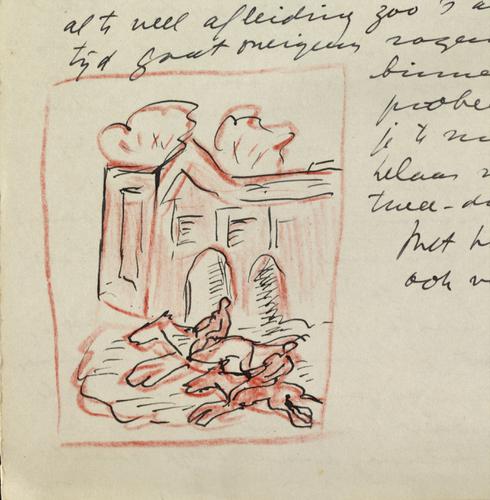 al te veel afleiding zoo 's a
tijd gaat overigens
binne
probe
je te
helaas
twee-d
Met h
ook v